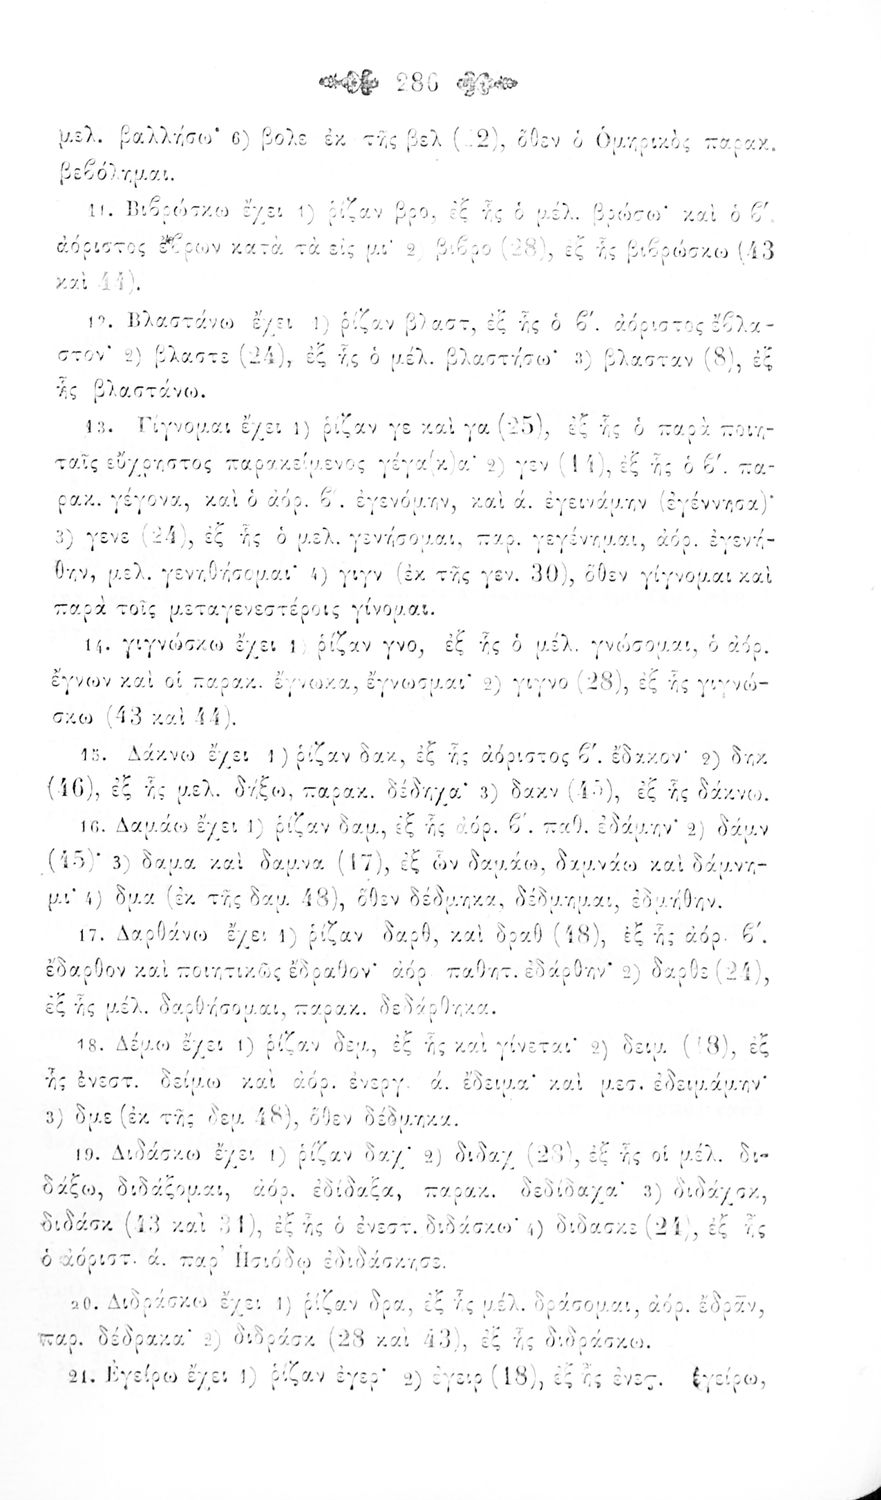 286
μελ. βαλλήσω· 6) βολε ἐκ τῆς βελ ( 2), ὅθεν ὁ Ὁμηρικὸς παρακ.
βεβόλημαι.
11. Βιβρώσκω ἔχει 1) ῥίζαν βρο, ἐξ ἧς ὁ μέλ. βρώσω· καὶ ὁ β΄.
ἀόριστος ἔβρων κατὰ τὰ εἰς μι· 2) βιβρο (28), ἐξ ἧς βιβρώσκω (43
καὶ 44).
12. Βλαστάνω ἔχει 1) ῥίζαν βλαστ, ἐξ ἧς ὁ β΄. ἀόριστος ἔβλα-
στον· 2) βλαστε (24), ἐξ ἧς ὁ μέλ. βλαστήσω· 3) βλασταν (8), ἐξ
ἧς βλαστάνω.
13. Γίγνομαι ἔχει 1) ῥίζαν γε καὶ γα (25), ἐξ ἧς ὁ παρὰ ποιη-
ταῖς εὔχρηστος παρακείμενος γέγα(κ)α· 2) γεν (14), ἐξ ἧς ὁ β΄. πα-
ρακ. γέγονα, καὶ ὁ ἀόρ. β΄. ἐγενόμην, καὶ ά. ἐγεινάμην (ἐγέννησα)·
3) γενε (24), ἐξ ἧς ὁ μελ. γενήσομαι, παρ. γεγένημαι, ἀόρ. ἐγενή-
θην, μελ. γενηθήσομαι· 4) γιγν (ἐκ τῆς γεν. 30), ὅθεν γίγνομαι καὶ
παρὰ τοῖς μεταγενεστέροις γίνομαι.
14. γιγνώσκω ἔχει 1 ῥίζαν γνο, ἐξ ἧς ὁ μέλ. γνώσομαι, ὁ ἀόρ.
ἔγνων καὶ οἱ παρακ. ἔγνωκα, ἔγνωσμαι· 2) γιγνο (28), ἐξ ἧς γιγνώ-
σκω (43 καὶ 44).
15. Δάκνω ἔχει 1) ῥίζαν δακ, ἐξ ἧς ἀόριστος β΄. ἔδακον· 2) δηκ
(46), ἐξ ἧς μελ. δήξω, παρακ. δέδηχα· 3) δακν (45), ἐξ ἧς δάκνω.
16. Δαμάω ἔχει 1) ῥίζαν δαμ, ἐξ ἧς ἀόρ. β΄. παθ. ἐδάμην· 2) δάμν
(45)· 3) δαμα καὶ δαμνα (17), ἐξ ὧν δαμάω, δαμνάω καὶ δάμνη-
μι· 4) δμα (ἐκ τῆς δαμ. 48), ὅθεν δέδμηκα, δέδμημαι, ἐδμήθην.
17. Δαρθάνω ἔχει 1) ῥίζαν δαρθ, καὶ δραθ (48), ἐξ ἧς ἀόρ. β΄.
ἔδαρθον καὶ ποιητικῶς ἔδραθον· ἀόρ παθητ. ἐδάρθην· 2) δαρθε (24),
ἐξ ἧς μέλ. δαρθήσομαι, παρακ. δεδάρθηκα.
18. Δέμω ἔχει 1) ῥίζαν δεμ, ἐξ ἧς καὶ γίνεται· 2) δειμ (18), ἐξ
ἧς ἐνεστ. δείμω καὶ ἀόρ. ἐνεργ. ά. ἔδειμα· καὶ μεσ. ἐδειμάμην·
3) δμε (ἐκ τῆς δεμ 48), ὅθεν δέδμηκα.
19. Διδάσκω ἔχει 1) ῥίζαν δαχ· 2) διδαχ (28), ἐξ ἧς οἱ μέλ. δι-
δάξω, διδάξομαι, ἀόρ. ἐδίδαξα, παρακ. δεδίδαχα· 3) διδάχσκ,
διδάσκ (43 καὶ 34), ἐξ ἧς ὁ ἐνεστ. διδάσκω· 4) διδασκε (24), ἐξ ἧς
ὁ ἀόριστ. ά. παρ' Ἡσιόδῳ ἐδιδάσκησε.
20. Διδράσκω ἔχει 1) ῥίζαν δρα, ἐξ ἧς μέλ. δράσομαι, ἀόρ. ἔδραν,
παρ. δέδρακα· 2) διδράσκ (28 καὶ 43), ἐξ ἧς διδράσκω.
21. Ἐγείρω ἔχει 1) ῥίζαν ἐγερ· 2) ἐγειρ (18), ἐξ ἧς ἐνες. ἐγείρω,